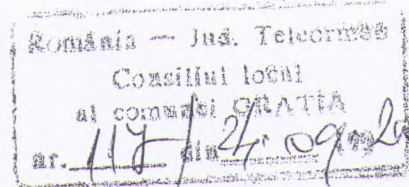 România — Jud. Teleorman
Consiliul local
al comunei GRATIA
nr. 117 / din 24 09